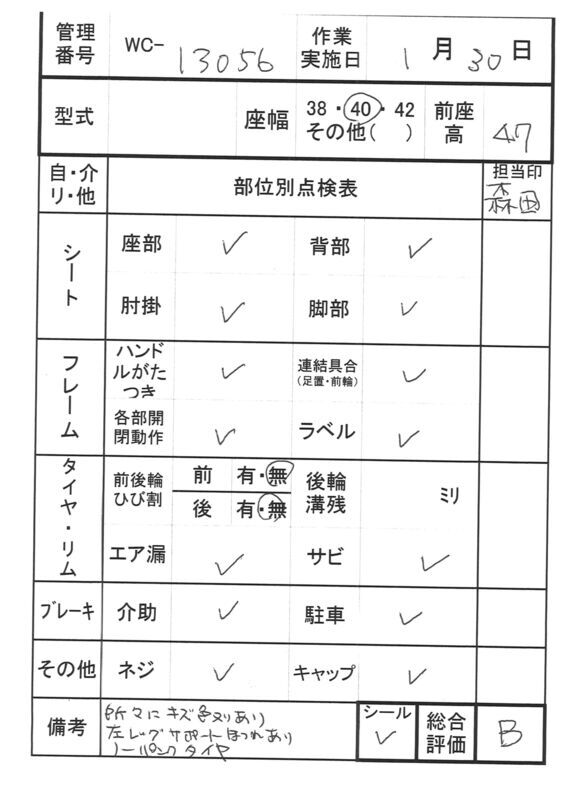 管理番号 WC- 13056 作業実施日 1月30日
型式 座幅 38・40・42 その他( ) 前座高 47
自・介リ・他 部位別点検表 担当印 森田
シート 座部 ✓ 背部 ✓
肘掛 ✓ 脚部 ✓
フレーム ハンドルがたつき ✓ 連結具合(足置・前輪) ✓
各部開閉動作 ✓ ラベル ✓
タイヤ・リム 前後輪ひび割 前 有・無 後輪溝残 ミリ
後 有・無
エア漏 ✓ サビ ✓
ブレーキ 介助 ✓ 駐車 ✓
その他 ネジ ✓ キャップ ✓
備考 所々にキズ色メリあり シール ✓ 総合評価 B
左レッグサポートほつれあり
ノーパンクタイヤ